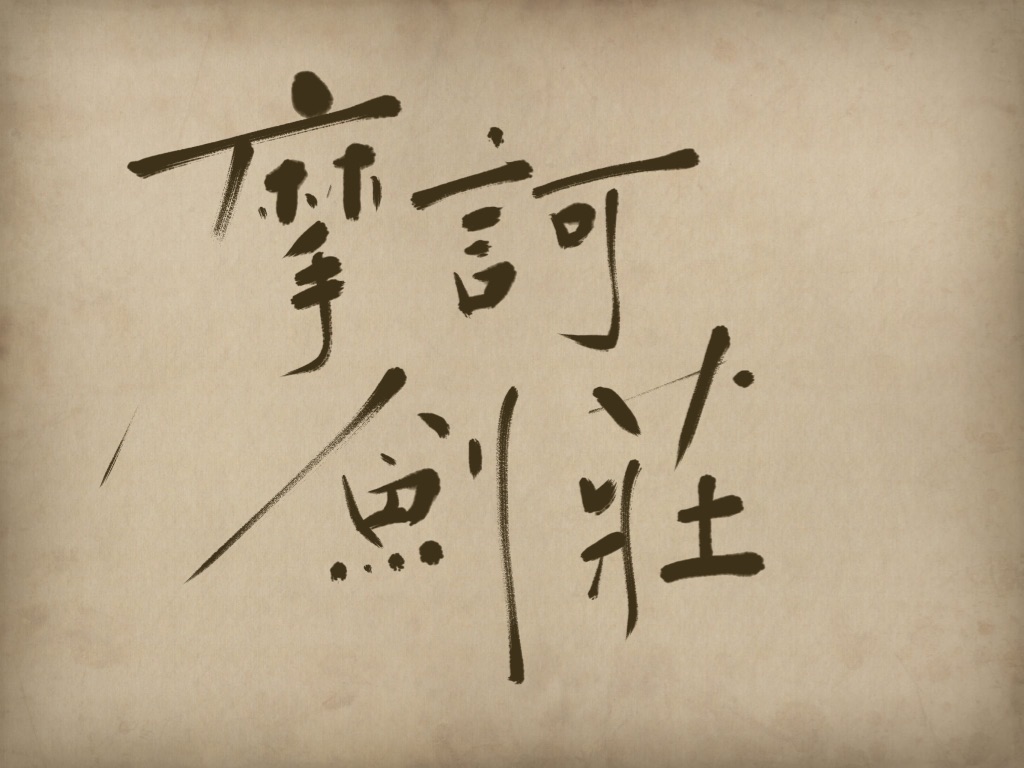 摩訶
劍莊